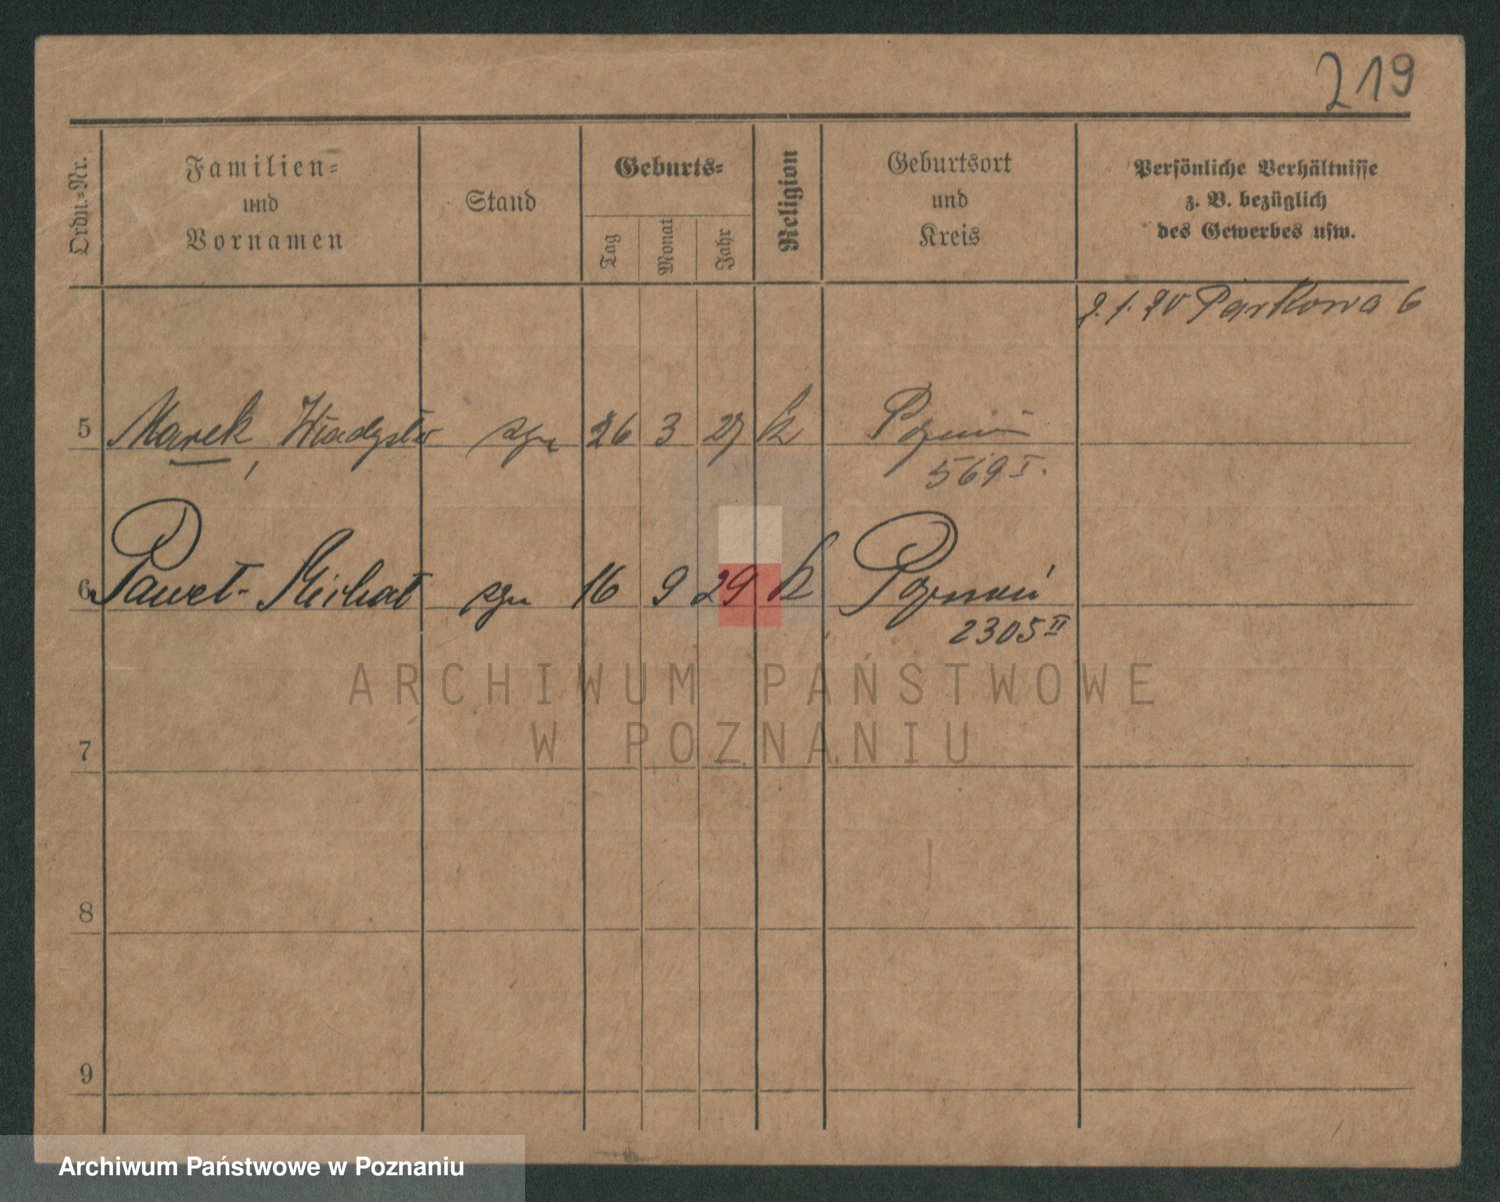 219
Ordn.-Nr.
Familien-
und
Vornamen
Stand
Geburts-
Tag
Monat
Jahr
Religion
Geburtsort
und
Kreis
Persönliche Verhältnisse
z. B. bezüglich
des Gewerbes usw.
Parkowa 6
5 Marek, Władysław 26 3 27 k Poznań
569 I.
6 Paweł-Michał 16 9 29 k Poznań
2305 II
ARCHIWUM PAŃSTWOWE
W POZNANIU
7
8
9
Archiwum Państwowe w Poznaniu